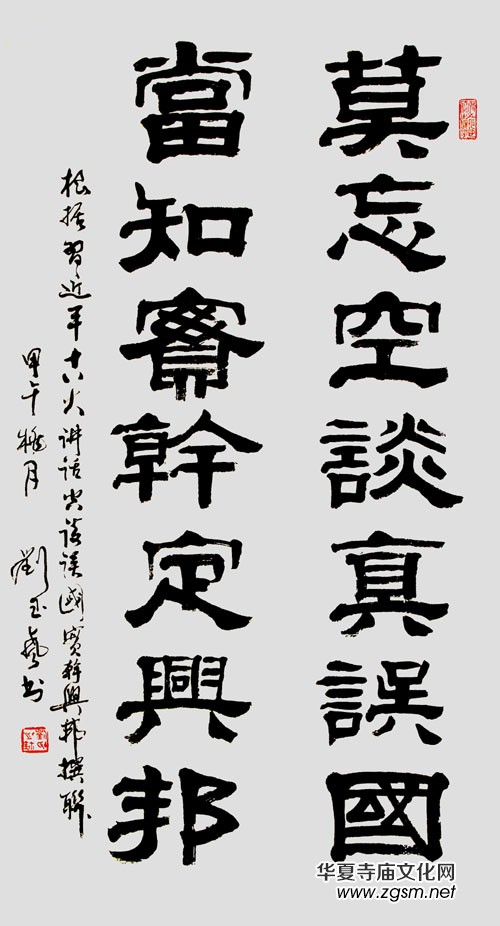 莫忘空談真誤國
當知實幹定興邦
根据習近平十八大讲话空谈误國實幹興邦撰聯
甲午月
劉玉书
华夏寺庙文化网
www.zgsm.net